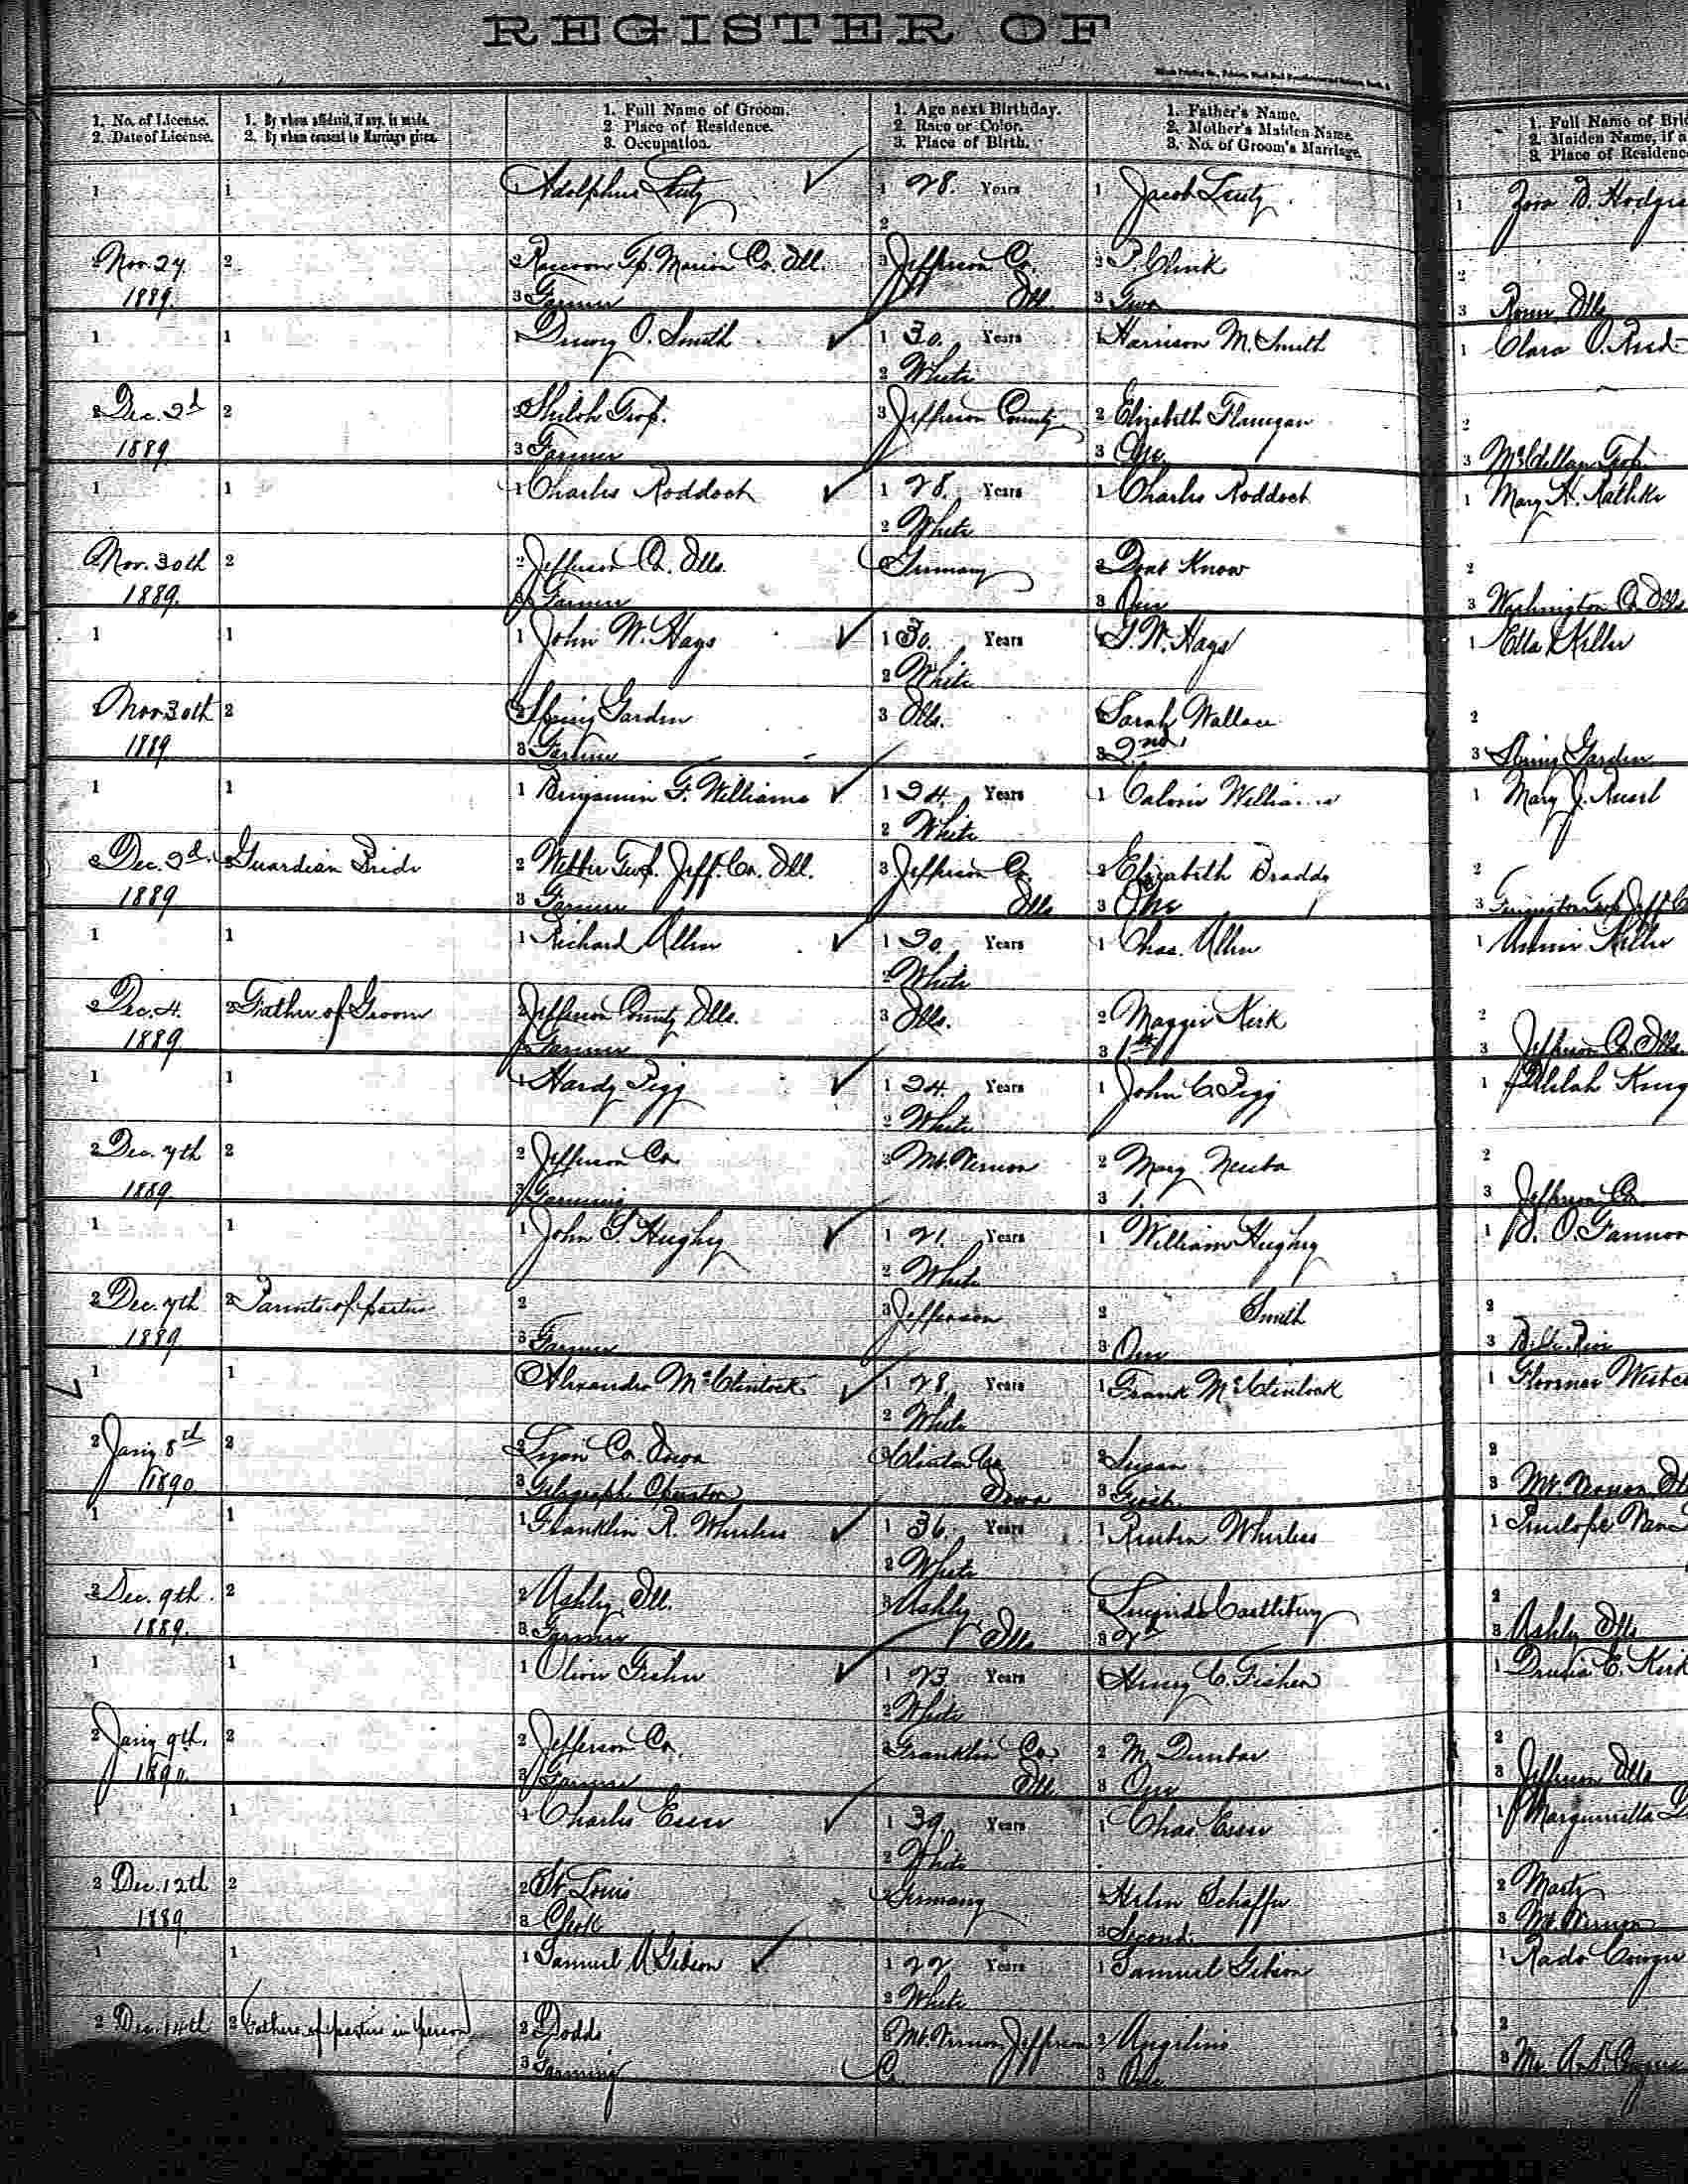 REGISTER OF
1. No. of License.
2. Date of License.
1. By whom affidavit, if any, is made.
2. By whom consent to Marriage given.
1. Full Name of Groom.
2. Place of Residence.
3. Occupation.
1. Age next Birthday.
2. Race or Color.
3. Place of Birth.
1. Father's Name.
2. Mother's Maiden Name
3. No. of Groom's Marriage
1. Full Name of Brid
2. Maiden Name, if a
3. Place of Residence
1 1 Adolphus Lentz 1 28. Years 1 Jacob Lentz 1 Zora D. Hodges
2
2 Nov. 27 2 2 Raccoon Tp. Marion Co. Ill. 3 Jefferson Co. 2 P. Clink 2
1889. 3 Farmer Ill. 3 Two 3 Rome Ills
1 1 1 O. Smith 1 30. Years 1 Harrison M. Smith 1 Clara O. Reed
2 White
2 Dec. 2d 2 2 Shiloh Twp. 3 Jefferson County 2 Elizabeth Flanigan 2
1889 3 Farmer 3 One 3 McClellan Twp.
1 1 1 Charles Roddock 1 28. Years 1 Charles Roddock 1 Mary H. Rathke
2 White
2 Nov. 30th 2 2 Jefferson Co. Ills. Germany 2 Dont Know 2
1889. 3 Farmer 3 One 3 Washington Co. Ills
1 1 1 John W. Hays 1 30. Years W. Hays 1 Ella Keller
2 White
2 Nov 30th 2 2 Spring Garden 3 Ills. Sarah Wallace 2
1889 3 Farmer 3 2nd. 3 Spring Garden
1 1 1 Benjamin F. Williams 1 24. Years 1 Calvin Williams 1 Mary J.
2 White
2 Dec. 2d. 2 Guardian Bride 2 Webber Twp. Jeff. Co. Ill. 3 Jefferson Co. 2 Elizabeth Bradds 2
1889 3 Farmer Ills 3 One 3 Twp Jeff C
1 1 1 Richard Allen 1 20. Years 1 Chas. Allen 1 Keller
2 White
2 Dec. 4. 2 Father of Groom 2 Jefferson County Ills. 3 Ills. 2 Maggie Kirk 2
1889 3 Farmer 3 1st 3 Jefferson Co. Ills.
1 1 1 Hardy Pigg 1 24. Years 1 John C. Pigg 1 Delilah King
2 White
2 Dec. 7th 2 2 Jefferson Co. 3 Mt. Vernon 2 Mary 2
1889 3 Farming 3 1. 3 Jefferson Co.
1 1 1 John S. Hughey 1 21. Years 1 William Hughey 1 O. Gannon
2 White
2 Dec. 7th 2 Parents of parties 2 3 Jefferson 2 Smith 2
1889 3 Farmer 3 One 3
1 1 Alexander McClintock 1 28. Years 1 Frank McClintock 1 Florence Webe
2 White
2 Jany 8th 2 2 Lyon Co. Iowa 3 Clinton Co. 2 Susan 2
1890 3 Telegraph Operator Iowa 3 First. 3 Mt. Vernon Ill
1 1 1 Franklin R. Whirless 1 36. Years 1 Reuben Whirless 1 Penelope
2 White
2 Dec. 9th. 2 2 Ashley Ill. 3 Ashley 2 Castleberry 2
1889. 3 Farmer Ills 3 3 Ashley Ills
1 1 1 Oliver Fisher 1 23 Years Henry C. Fisher 1 Drucia E. Kirk
2 White
2 Jany 9th. 2 2 Jefferson Co. 3 Franklin Co. 2 M. Dunbar 2
1890 3 Farmer Ill. 3 One 3 Jefferson Ills
1 1 1 Charles Esser 1 39. Years 1 Chas Esser 1
2 White
2 Dec. 12th 2 2 St Louis Germany 2 Helen Schaffer 2 Marty
1889. 3 3 Second. 3 Mt. Vernon
1 1 1 Samuel Gibson 1 22 Years 1 Samuel Gibson 1
2 White
2 Dec. 14th 2 Fathers of parties in person 2 Dodds 3 Mt. Vernon Jefferson 2 Angeline 2
3 Farming Co. 3 One 3